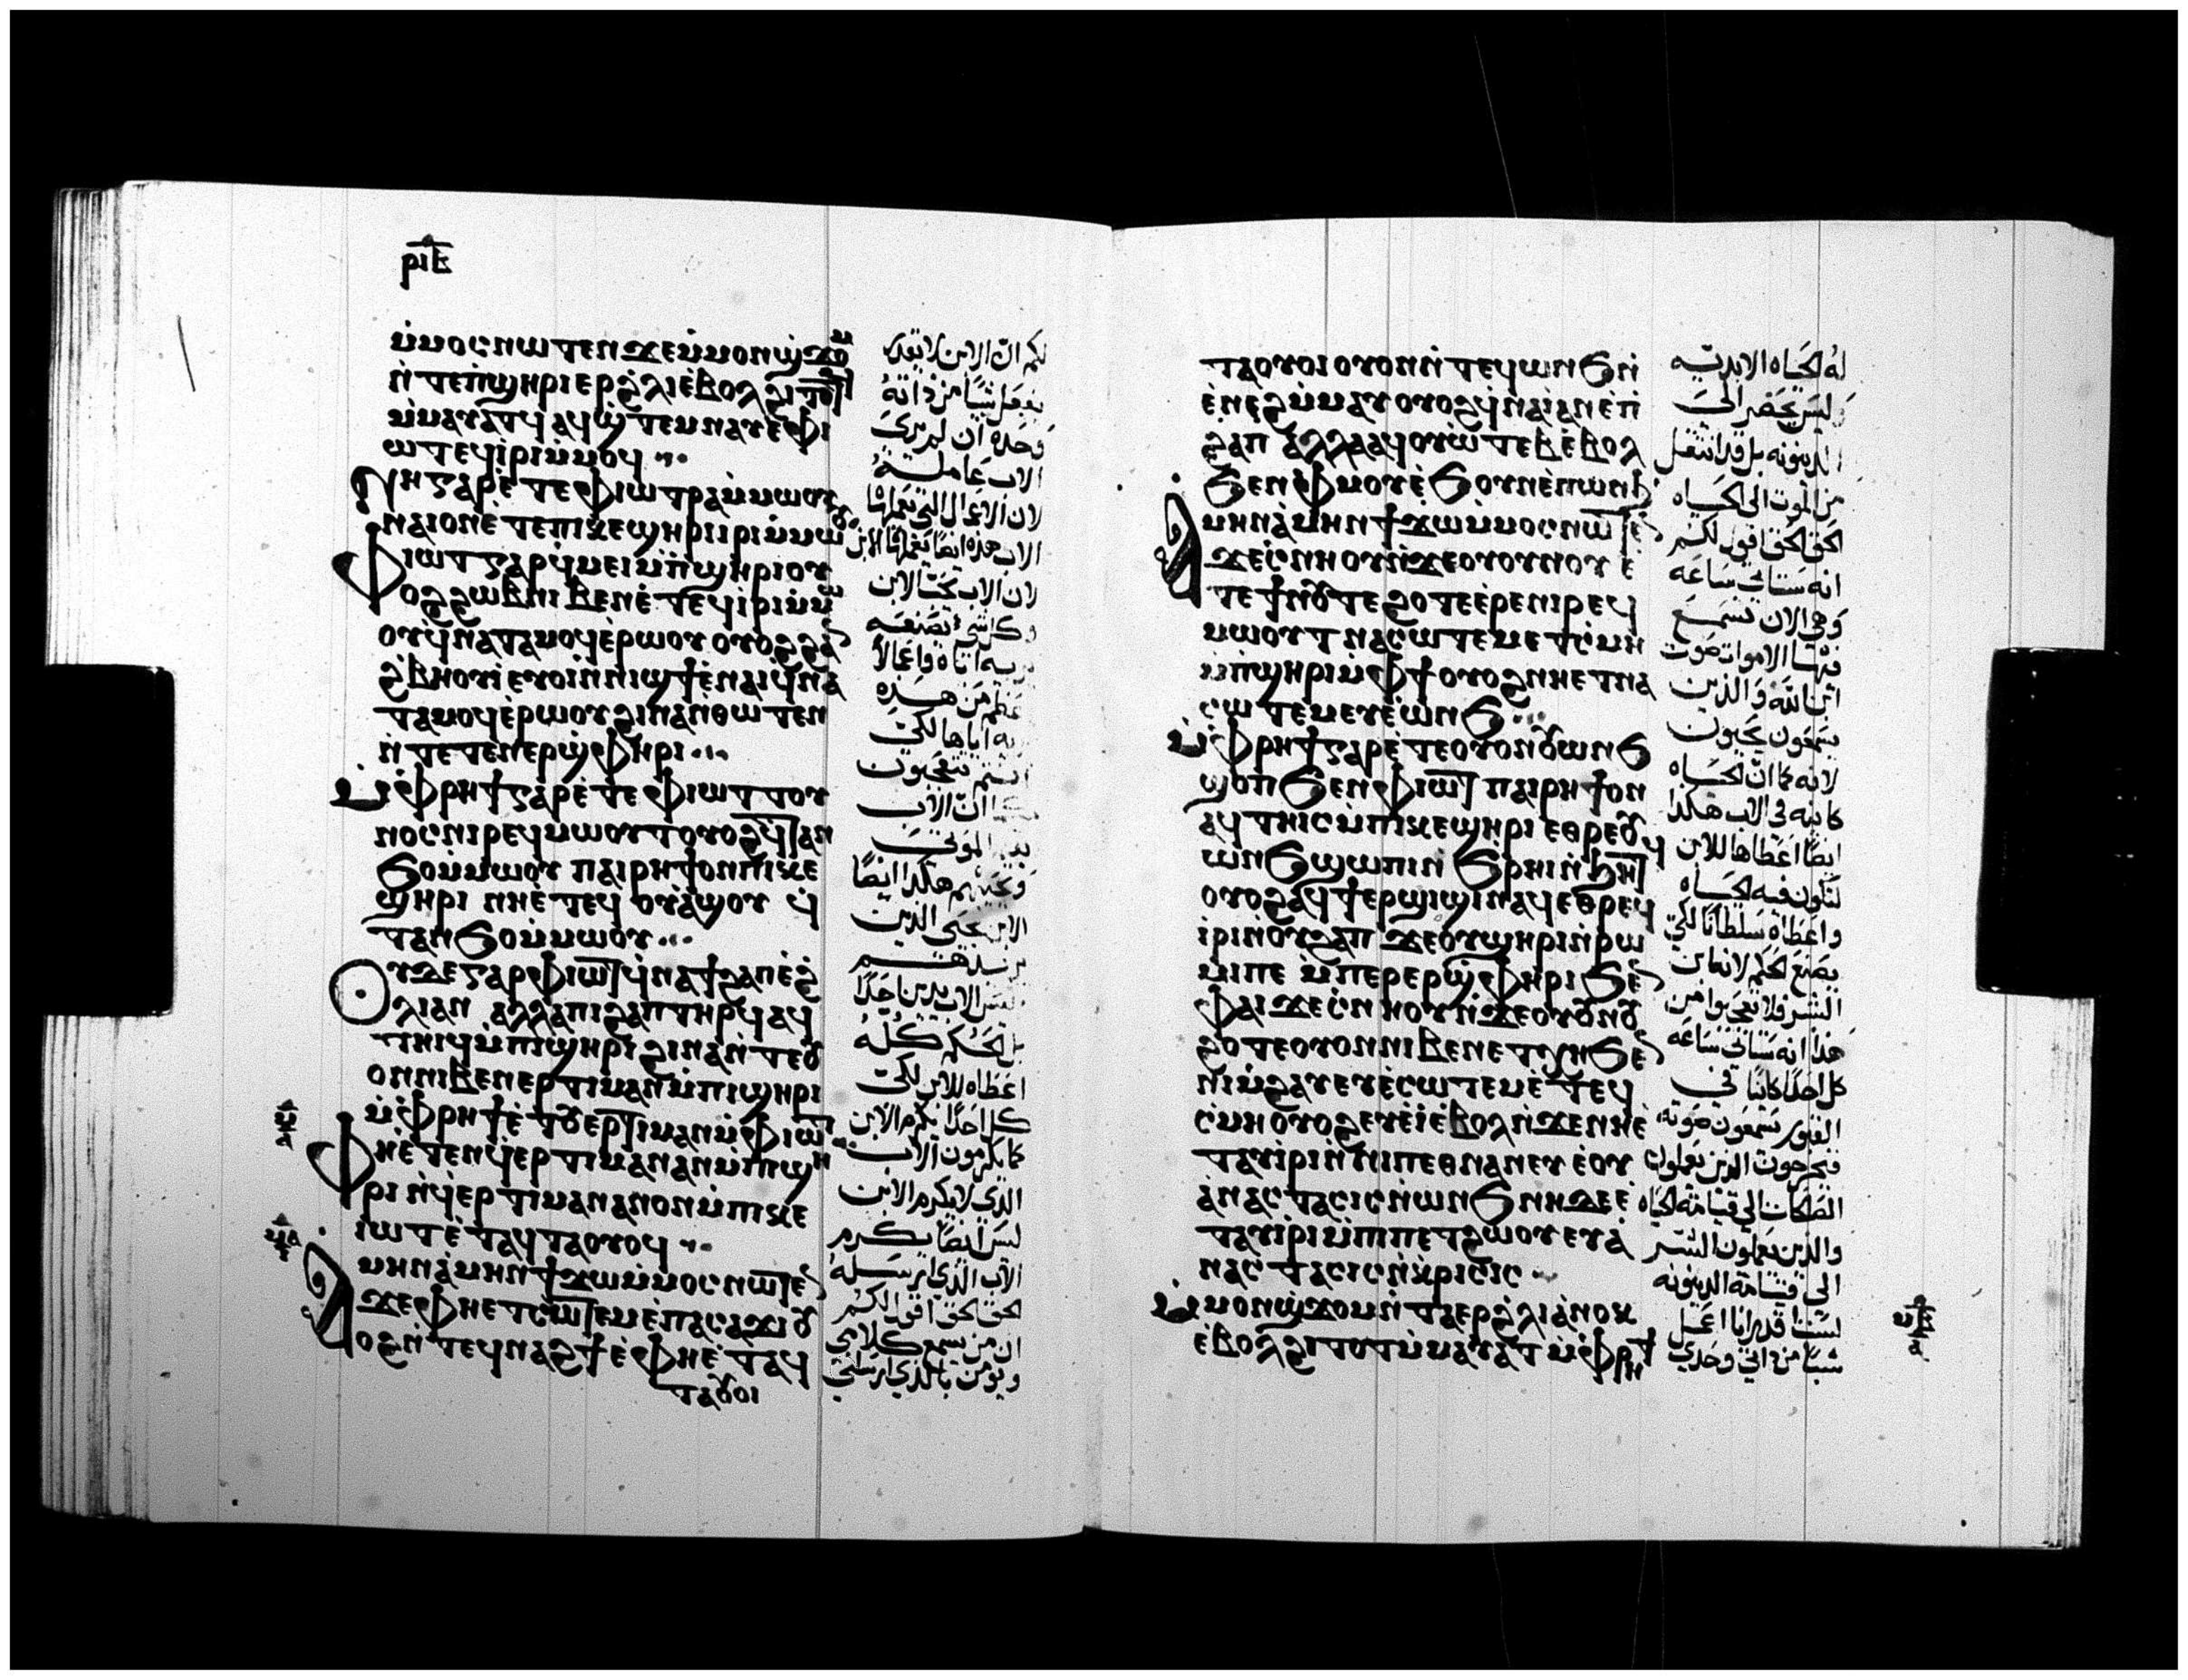 ⲣⲓⲉ
ⲙ̇ⲙⲟⲥⲛⲱⲧⲉⲛϫⲉⲙ̇ⲙⲟⲛϣ̇ϫⲟⲙ
ⲛ̇ⲧⲉⲡ̇ϣⲏⲣⲓⲉⲣϩ̇ⲗⲓⲉ̇ⲃⲟⲗϩⲓⲧⲟⲧϥ
ⲙ̇ⲙⲁⲩⲁ̇ⲧϥ ⲁϥϣ̇ⲧⲉⲙⲛⲁⲩⲉ̇ⲫⲓ
ⲱⲧⲉϥⲓ̇ⲣⲓⲙ̇ⲙⲟϥ
ⲛⲏⲅⲁⲣⲉ̇ⲧⲉⲫⲓⲱⲧⲣⲁⲙ̇ⲙⲱⲟⲩ
ⲛⲁⲓⲟⲛⲉ̇ⲧⲉⲡⲓⲕⲉϣⲏⲣⲓⲓⲣⲓⲙ̇ⲙⲱⲟⲩ
ⲫⲓⲱⲧⲅⲁⲣϥ̇ⲙⲉⲓⲙ̇ⲡ̇ϣⲏⲣⲓⲟⲩ
ⲟϩϩⲱⲃⲛⲓⲃⲉⲛⲉ̇ⲧⲉϥⲓ̇ⲣⲓⲙ̇ⲙⲱ
ⲟⲩϥ̇ⲛⲁⲧⲁⲙⲟϥⲉ̇ⲣⲱⲟⲩ ⲟⲩⲟϩϩⲁⲛ
ϩ̇ⲃⲏⲟⲩⲓ̇ⲉⲩⲟⲓⲛ̇ⲛⲓϣϯⲉ̇ⲛⲁⲓϥ̇ⲛⲁ
ⲧⲁⲙⲟϥⲉ̇ⲣⲱⲟⲩϩⲓⲛⲁⲛ̇ⲑⲱⲧⲉⲛ
ⲛ̇ⲧⲉⲧⲉⲛⲉⲣϣ̇ⲫⲏⲣⲓ
ⲙ̇ⲫⲣⲏϯⲅⲁⲣⲉ̇ⲧⲉⲫⲓⲱⲧⲧⲟⲩ
ⲛⲟⲥⲛⲓⲣⲉϥⲙⲱⲟⲩⲧⲟⲩⲟϩϥ̇ⲧⲁⲛ
ϧⲟⲙ̇ⲙⲱⲟⲩ ⲡⲁⲓⲣⲏϯⲟⲛⲡⲓⲕⲉ
ϣⲏⲣⲓ ⲛⲏⲉ̇ⲧⲉϥ ⲟⲩⲁ̇ϣⲟⲩ ϥ̇
ⲧⲁⲛϧⲟⲙ̇ⲙⲱⲟⲩ
ⲟⲩⲇⲉⲅⲁⲣⲫⲓⲱⲧϥ̇ⲛⲁϯϩⲁⲡⲉ̇ϩ̇
ⲗⲓⲁⲛ ⲁⲗⲗⲁⲡⲓϩⲁⲡⲧⲏⲣϥⲁϥ
ⲧⲏⲓϥⲙ̇ⲡⲓϣⲏⲣⲓ ϩⲓⲛⲁⲛ̇ⲧⲉⲟⲩ
ⲟⲛⲛⲓⲃⲉⲛⲉⲣⲧⲓⲙⲁⲛⲙ̇ⲡⲓϣⲏⲣⲓ
ⲙ̇ⲫⲣⲏϯⲉ̇ⲧⲟⲩⲉⲣⲧⲓⲙⲁⲛⲙ̇ⲫⲓⲱⲧ
ⲫⲏⲉ̇ⲧⲉⲛϥ̇ⲉⲣⲧⲓⲙⲁⲛⲁⲛⲙ̇ⲡϣⲏ
ⲣⲓ ⲛ̇ϥ̇ⲉⲣⲧⲓⲙⲁⲛⲁⲛⲟⲛⲙ̇ⲡⲓⲕⲉ
ⲓⲱⲧⲉ̇ⲧⲁϥⲧⲁⲟⲩⲟϥ
ⲁⲙⲏⲛⲁ̇ⲙⲏⲛϯϫⲱⲙ̇ⲙⲟⲥⲛⲱⲧⲉⲛ
ϫⲉⲫⲏⲉⲧⲥⲱⲧⲉⲙⲉ̇ⲡⲁⲥⲁϫⲓⲟⲩ
ⲟϩⲛ̇ⲧⲉϥⲛⲁϩϯⲉ̇ⲫⲏⲉ̇ⲧⲁϥ
ⲧⲁⲟⲩⲟⲓ
لكم ان الابن لا يقدر
يفعل شيئًا من ذاته
وحده ان لم يرى
الاب عامله
لان الاعمال التي يعملها
الاب هذه ايضًا يعملها الابن
لان الاب يحب الابن
وكل شي يصنعه
يريه اياه واعمالا
اعظم من هذه
يريه اياها لكي
انتم تتعجبون
كما ان الاب
يقيم الموتى
ويحييهم هكذا ايضًا
الابن يحيي الذين
يريدهم
ليس الاب يدين احدًا
بل الحكم كله
اعطاه للابن لكي
كل احدًا يكرم الابن
كما يكرمون الاب
الذي لا يكرم الابن
ليس ايضًا يكرم
الاب الذي ارسله
الحق الحق اقول لكم
ان من يسمع كلامي
ويومن بالذي ارسلني
ⲧⲁⲟⲩⲟⲓ ⲟⲩⲟⲛⲛ̇ⲧⲉϥⲱⲛϧⲛ̇
ⲉ̇ⲛⲉϩⲙ̇ⲙⲁⲩ ⲟⲩⲟϩϥ̇ⲛⲁⲓ̇ⲁⲛⲉ̇ⲡ̇
ϩⲁⲡ ⲁ̇ⲗⲗⲁⲁϥⲟⲩⲱ̇ⲧⲉⲃⲉ̇ⲃⲟⲗ
ϧⲉⲛⲫⲙⲟⲩⲉ̇ϧⲟⲩⲛⲉ̇ⲡⲱⲛϧ
ⲁⲙⲏⲛⲁ̇ⲙⲏⲛϯϫⲱⲙ̇ⲙⲟⲥⲛⲱⲧⲉⲛ
ϫⲉⲥ̇ⲛⲏⲟⲩⲛ̇ϫⲉⲟⲩⲟⲩⲛⲟⲩ ⲉ̇
ⲧⲉϯⲛⲟⲩⲧⲉϩⲟⲧⲉⲉ̇ⲣⲉⲛⲓⲣⲉϥ
ⲙⲱⲟⲩⲧⲛⲁⲥⲱⲧⲉⲙⲉⲧⲥ̇ⲙⲏ
ⲙ̇ⲡ̇ϣⲏⲣⲓⲙ̇ⲫϯⲟⲩⲟϩⲛⲏⲉⲧⲛⲁ
ⲥⲱⲧⲉⲙⲉⲩⲉ̇ⲱⲛϧ
ⲙ̇ⲫⲣⲏϯⲅⲁⲣⲉ̇ⲧⲉⲟⲩⲟⲛⲟⲩⲱⲛϧ
ϣⲟⲡϧⲉⲛⲫⲓⲱⲧ ⲡⲁⲓⲣⲏϯⲟⲛ
ⲁϥⲧⲏⲓⲥⲙ̇ⲡⲓⲕⲉϣⲏⲣⲓ ⲉⲑⲣⲉⲟⲩ
ⲱⲛϧϣⲱⲡⲓⲛ̇ϧⲣⲏⲓⲛ̇ϧⲏⲧϥ
ⲟⲩⲟϩⲁϥϯⲉⲣϣⲓϣⲓⲛⲁϥⲉⲑⲣⲉϥ
ⲓ̇ⲣⲓⲛ̇ⲟⲩϩⲁⲡ ϫⲉⲟⲩϣⲏⲣⲓⲛ̇ⲣⲱ
ⲙⲓⲡⲉ ⲙ̇ⲡⲉⲣⲉⲣϣ̇ⲫⲏⲣⲓϧⲉⲛ
ⲫⲁⲓϫⲉⲥ̇ⲛⲏⲟⲩⲛ̇ϫⲉⲟⲩⲟⲩⲛⲟⲩ
ϩⲟⲧⲉⲟⲩⲟⲛⲛⲓⲃⲉⲛⲉⲧⲭⲏϧⲉⲛ
ⲛⲓⲙ̇ϩⲁⲩⲉⲩⲉ̇ⲥⲱⲧⲉⲙⲉ̇ⲧⲉϥ
ⲥ̇ⲙⲏⲟⲩⲟϩⲉⲩⲉ̇ⲓ̇ⲉ̇ⲃⲟⲗⲛ̇ϫⲉⲛⲏⲉ̇
ⲧⲁⲩⲓ̇ⲣⲓⲛ̇ⲛⲓⲡⲉⲑⲛⲁⲛⲉⲩ ⲉ̇ⲟⲩ
ⲁ̇ⲛⲁⲥⲧⲁⲥⲓⲥⲛ̇ⲱⲛϧⲛⲏⲇⲉⲉ̇
ⲧⲁⲩⲓ̇ⲣⲓⲙ̇ⲡⲓⲡⲉⲧϩⲱⲟⲩⲉⲩⲁ̇
ⲛⲁⲥⲧⲁⲥⲓⲥⲛ̇ⲕ̇ⲣⲓⲥⲓⲥ
ⲙ̇ⲙⲟⲛϣ̇ϫⲟⲙⲛ̇ⲧⲁⲉⲣϩ̇ⲗⲓⲁ̇ⲛⲟⲕ
ⲉ̇ⲃⲟⲗϩⲓⲧⲟⲧⲙ̇ⲙⲁⲩⲁ̇ⲧ ⲙ̇ⲫⲣⲏϯ
له الحياه الابديه
وليس يحضر الى
الدينونه بل قد انتقل
من الموت الى الحياه
الحق الحق اقول لكم
انه ستاتي ساعه
وهي الان تسمع
فيها الاموات صوت
ابن الله والذين
يسمعون يحيون
لانه كما ان الحياه
كاينه في الاب هكذا
ايضًا اعطاها للابن
لتكون فيه الحياه
واعطاه سلطانًا لكي
يصنع الحكم لانه ابن
البشر فلا تعجبوا من
هذا انه ستاتي ساعه
كل احدًا كاينا في
القبور يسمعون صوته
فيخرجون الذين يعملون
الصالحات الى قيامة الحياه
والذين يعملون الشر
الى قيامة الدينونه
لست اقدر انا اعمل
شيئًا من ذاتي وحدي